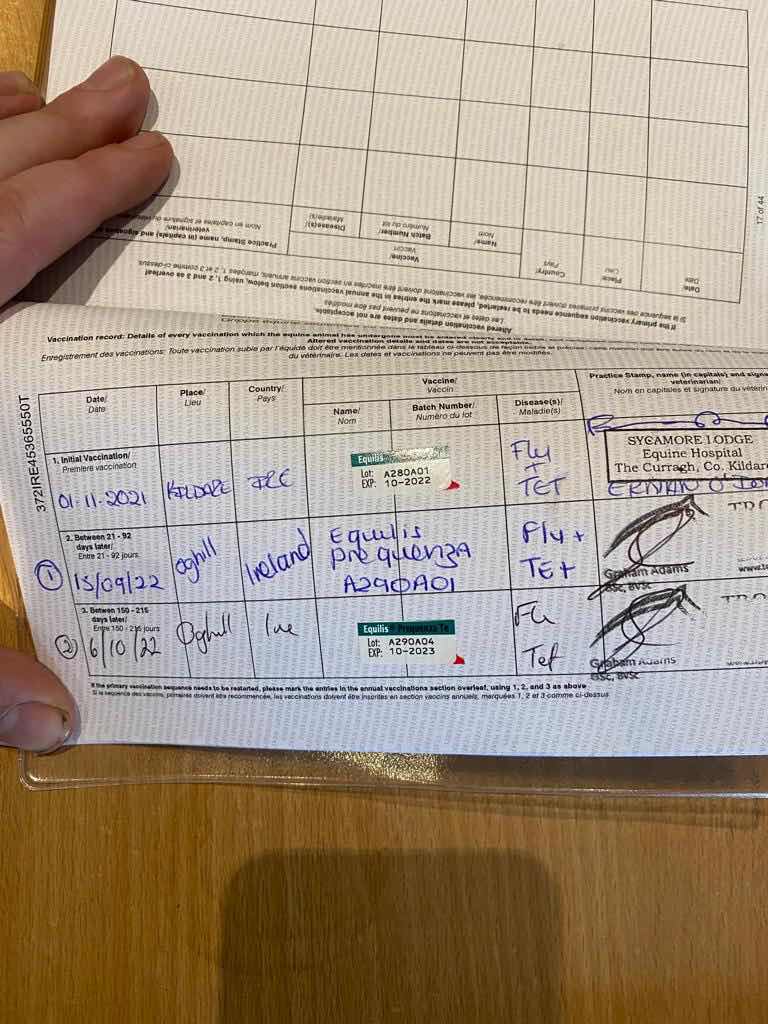 17 of 44
Date/
Date
Place/
Lieu
Country/
Pays
Vaccine/
Vaccin
Name/
Nom
Batch Number/
Numéro du lot
Disease(s)/
Maladie(s)
Practice Stamp, name (in capitals) and
veterinarian/
Nom en capitales et signature du
If the primary vaccination sequence needs to be restarted, please mark the entries in the annual vaccinations section below, using 1, 2 and 3 as overleaf
Altered vaccination details and dates are not acceptable.
Les dates et vaccinations ne peuvent pas être modifiés
Vaccination record: Details of every vaccination which the equine animal has undergone must be
Altered vaccination details and dates are not acceptable.
Enregistrement des vaccinations: Toute vaccination subie par l'équidé doit être mentionnée dans le tableau ci-dessous de façon lisible et précise
du vétérinaire. Les dates et vaccinations ne peuvent pas être modifiés.
372IRE45365550T
Date/
Date
Place/
Lieu
Country/
Pays
Vaccine/
Vaccin
Name/
Nom
Batch Number/
Numéro du lot
Disease(s)/
Maladie(s)
Practice Stamp, name (in capitals) and
veterinarian/
Nom en capitales et signature du
1. Initial Vaccination/
Première vaccination
01-11-2021
KILDARE
IRE
Equilis
Lot: A280A01
EXP: 10-2022
Flu
+
TET
SYCAMORE LODGE
Equine Hospital
The Curragh, Co. Kildar
2. Between 21 - 92
days later/
Entre 21 - 92 jours
1
15/09/22
Oghill
Ireland
Equilis
prequenza
A290A01
Flu +
TET
Graham Adams
BSc, BVSc
3. Betwen 150 - 215
days later/
Entre 150 - 215 jours
2
6/10/22
Oghill
Ire
Equilis Prequenza Te
Lot: A290A04
EXP: 10-2023
Flu
Tet
Graham Adams
BSc, BVSc
If the primary vaccination sequence needs to be restarted, please mark the entries in the annual vaccinations section overleaf, using 1, 2, and 3 as above
Si la séquence des vaccins, primaires doivent être recommencée, les vaccinations doivent être inscrites en section vaccins annuels, marquées 1, 2 et 3 comme ci-dessus